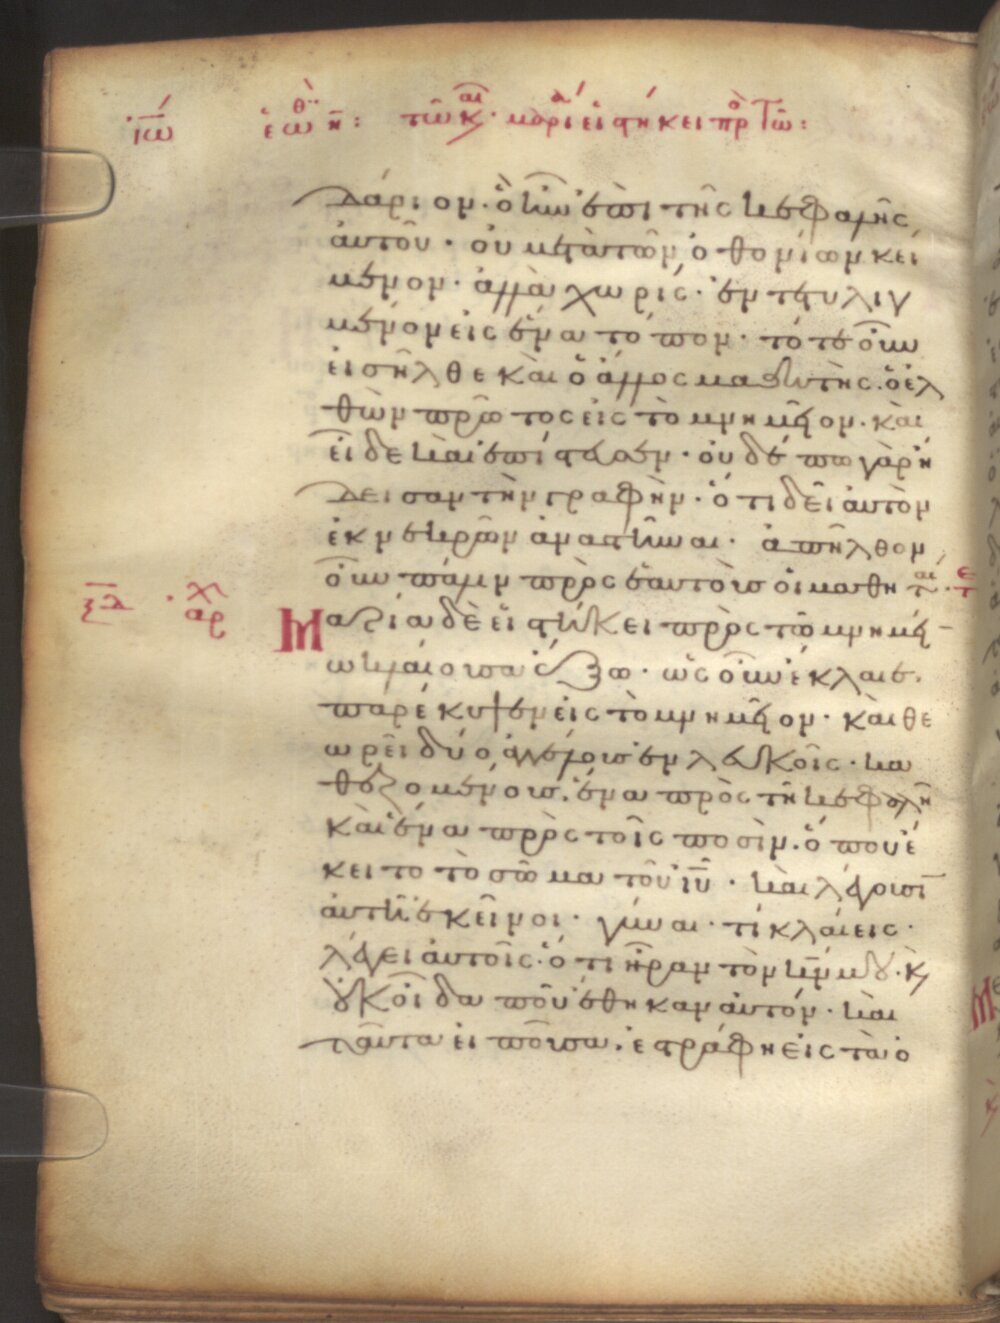 ἰω ἑωθ η: τῶ κ αι · μαρί εἱστήκει πρ τῶ:
δάριον· ὃ ἦν ἐπὶ τῆς κεφαλῆς
αὐτοῦ· οὐ μετὰ τῶν ὀθονίων κεί
μενον· ἀλλὰ χωρὶς· ἐντετυλιγ
μένον εἰς ἕνα τόπον· τότε οὖν
εἰσῆλθε καὶ ὁ ἄλλος μαθητὴς· ὁ ἐλ
θὼν πρῶτος εἰς τὸ μνημεῖον· καὶ
εἶδε καὶ ἐπίστευσεν· οὐδέπω γὰρ ἤ
δεισαν τὴν γραφὴν· ὅτι δεῖ αὐτὸν
ἐκ νεκρῶν ἀναστῆναι· ἀπῆλθον
οὖν πάλιν πρὸς ἑαυτοὺς οἱ μαθηταί· τε
ξδ · χ αρ
Μαρία δὲ εἱστήκει πρὸς τῷ μνημεί
ω κλαίουσα ἔξω· ὡς οὖν ἔκλαιε·
παρέκυψεν εἰς τὸ μνημεῖον· καὶ θε
ωρεῖ δύο ἀγγέλους ἐν λευκοῖς· κα
θεζομένους· ἕνα πρὸς τῆ κεφαλῆ
καὶ ἕνα πρὸς τοῖς ποσὶν· ὅπου ἔ
κειτο τὸ σῶμα τοῦ ιυ· καὶ λέγουσι
αὐτῆ ἐκεῖνοι· γύναι· τί κλαίεις·
λέγει αὐτοῖς· ὅτι ἦραν τὸν κν μου· κ
οὐκ οἶδα ποῦ ἔθηκαν αὐτόν· καὶ
ταῦτα εἰποῦσα· ἐστράφη εἰς τὰ ὀ